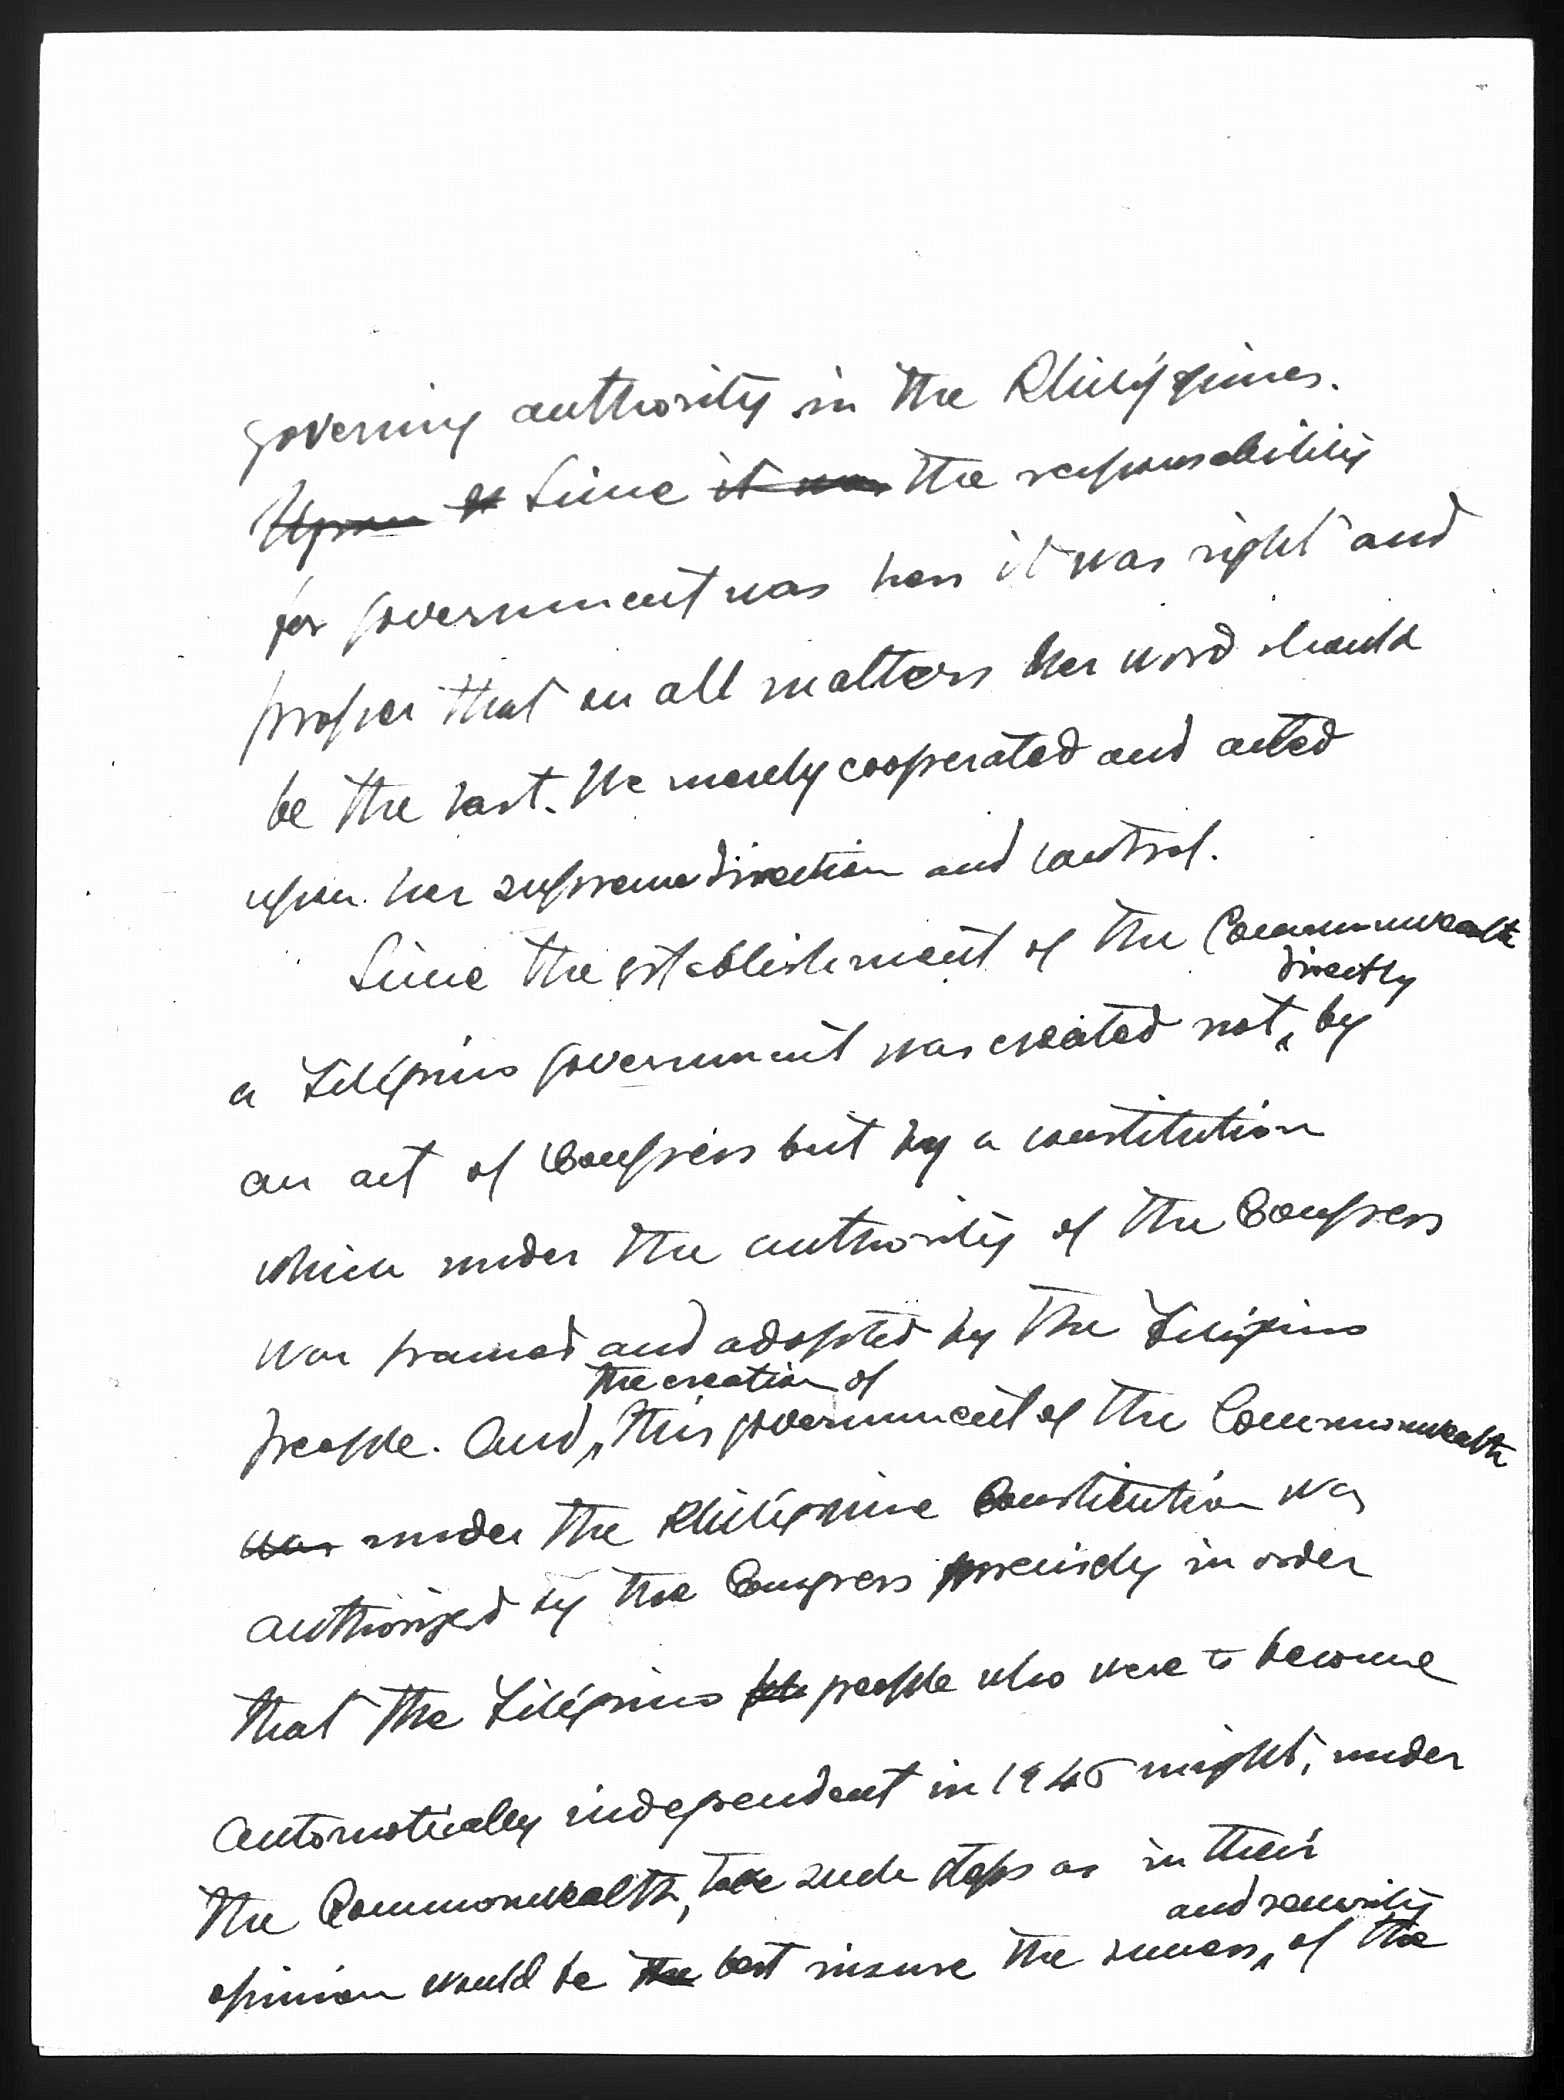 governing authority in the Philippines.
Upon it Since it was the responsibility
for government was hers it was right and
proper that on all matters her word should
be the last. We merely cooperated and acted
upon her supreme direction and control.
Since the establishment of the Commonwealth
directly
a Filipino government was created not ‸ by
an act of Congress but by a constitution
which under the authority of the Congress
was framed and adopted by the Filipino
the creation of
people. And ‸ this government of the Commonwealth
was under the Philippine Constitution was
authorized by the Congress precisely in order
that the Filipino people who were to become
automatically independent in 1946 might, under
the Commonwealth, take such steps as in their
and security
opinion would be the best insure the success ‸ of the